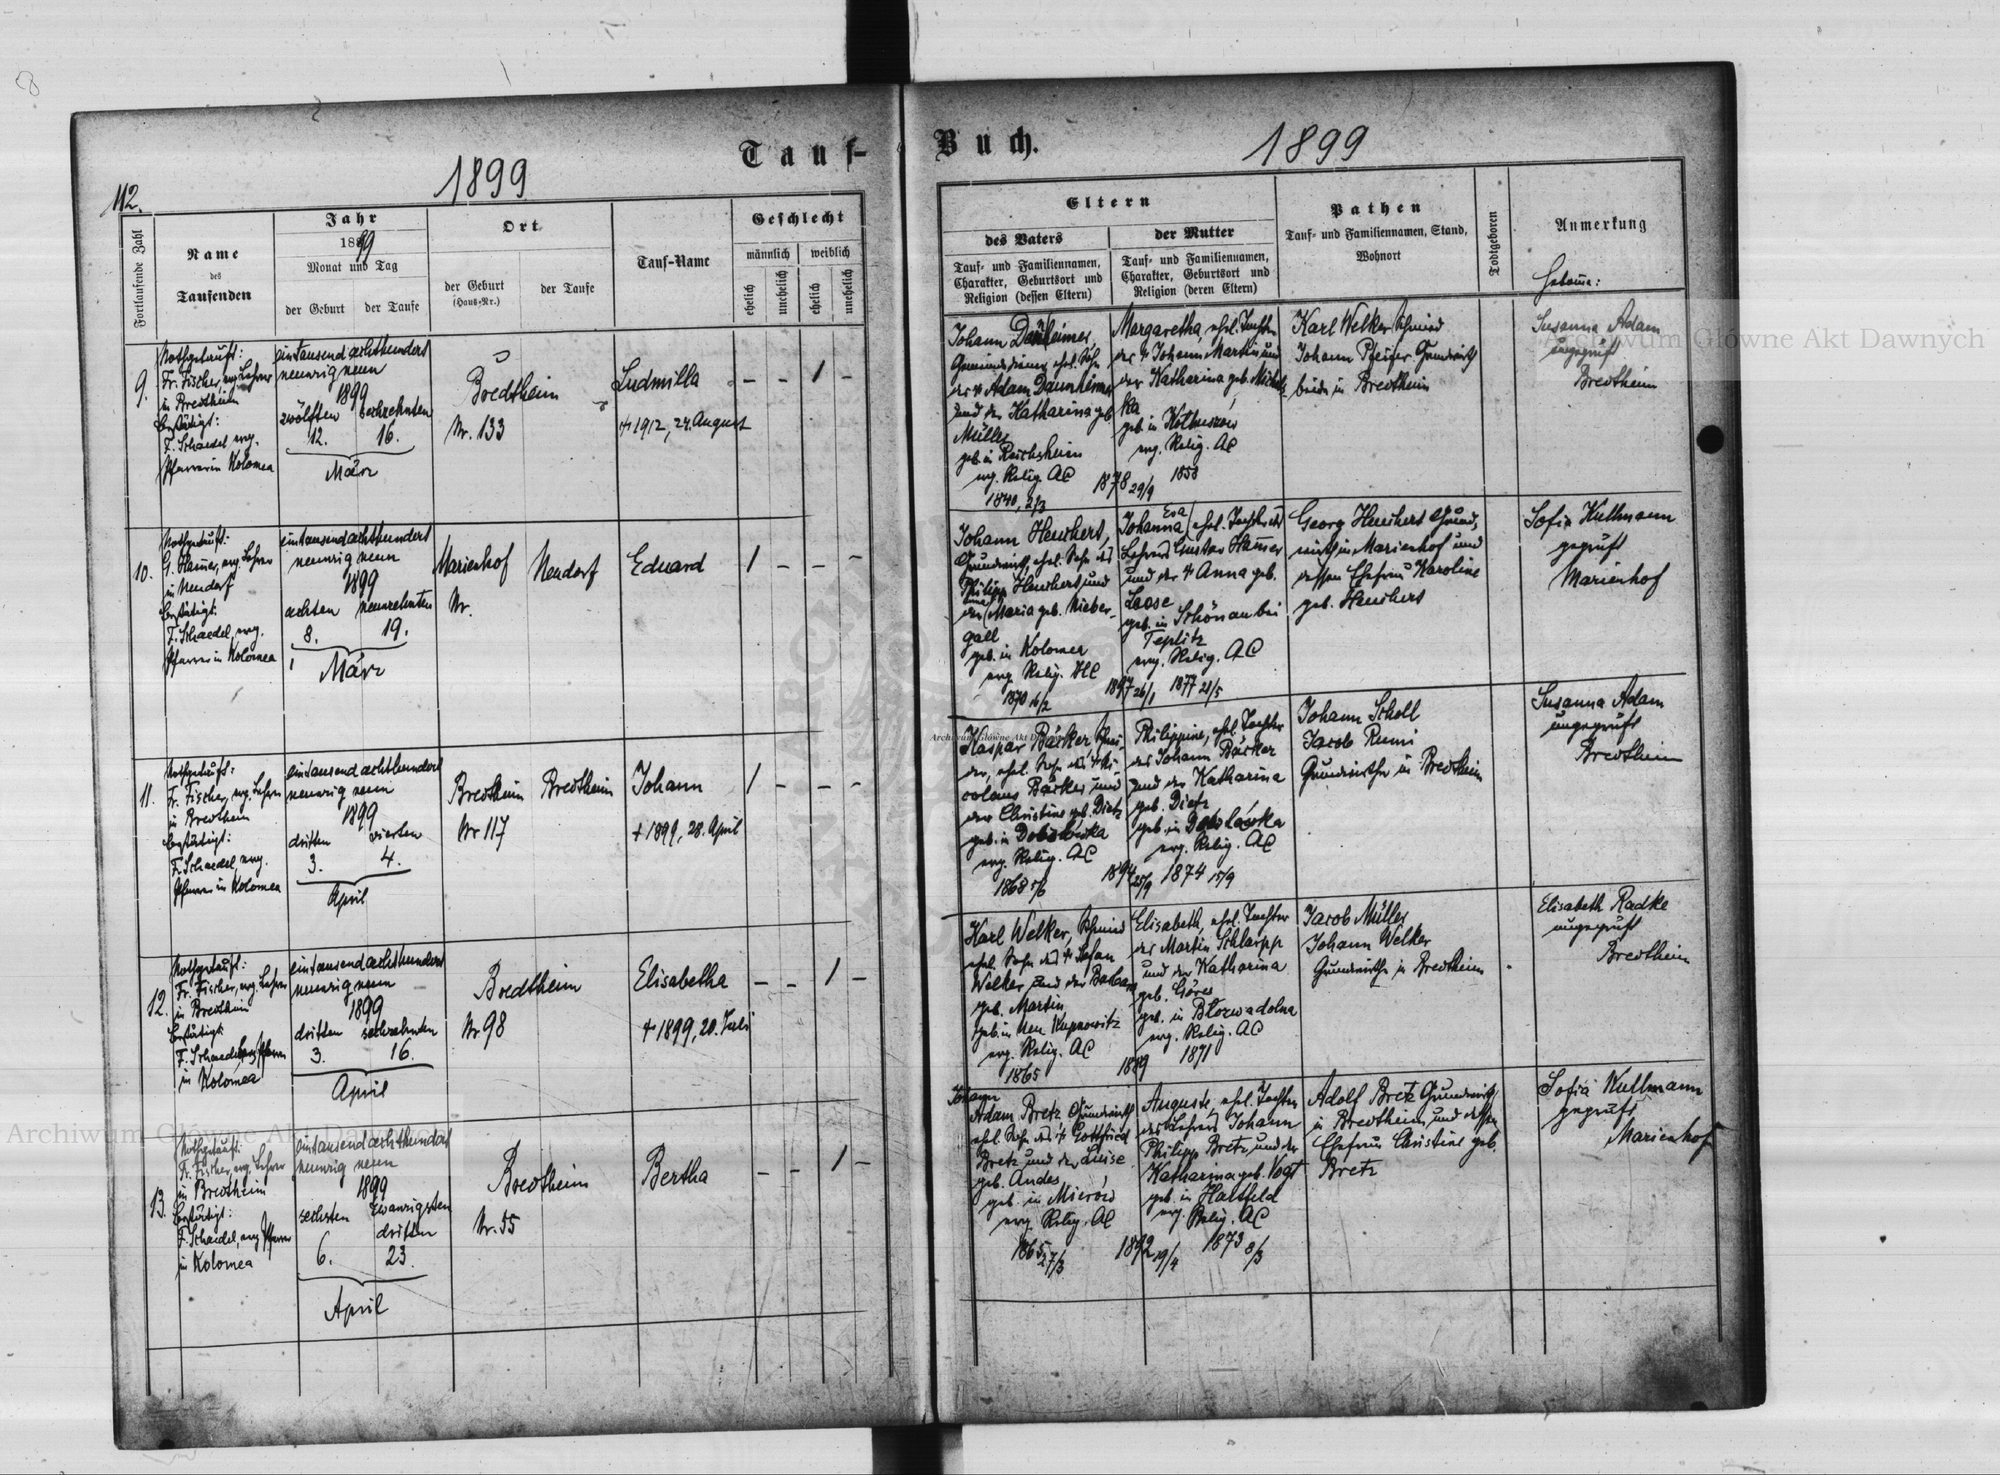 Tauf-Buch.
1899
1899
112.
Fortlaufende Zahl
Name
des
Taufenden
Jahr
1899
Monat und Tag
der Geburt
der Taufe
Ort
der Geburt
(Haus-Nr.)
der Taufe
Tauf-Name
Geschlecht
männlich
weiblich
ehelich
unehelich
ehelich
unehelich
Eltern
des Vaters
der Mutter
Tauf- und Familiennamen,
Charakter, Geburtsort und
Religion (dessen Eltern)
Tauf- und Familiennamen,
Charakter, Geburtsort und
Religion (deren Eltern)
Pathen
Tauf- und Familiennamen, Stand,
Wohnort
Todtgeboren
Anmerkung
9.
Nothgetauft:
Fr. Fischer, evg. Lehrer
in Bredtheim
bestätigt:
F. Schaedel evg.
Pfarrer in Kolomea
eintausend achthundert
neunzig neun
1899
zwölften sechzehnten
12. 16.
März
Bredtheim
Nr. 133
Ludmilla
† 1912, 24. August
- - 1 -
Johann Dauheimer,
Gemeindediener, ehel. Sohn
des † Adam Daunheimer
und der Katharina geb.
Müller
geb. in Reichsheim
evg. Relig. AC
1840, 2/3
1878 29/9
Margaretha, ehel. Tochter
des † Johann Martin und
der Katharina geb.
geb. in
evg. Relig. AC
1858
Karl Welker Schmied
Johann Pfeifer Grundwirth
beide in Bredtheim
Susanna Adam
ungeprüft
Bredtheim
10.
Nothgetauft:
G. Hamer, evg. Lehrer
in Neudorf
bestätigt:
F. Schaedel, evg.
Pfarrer in Kolomea
eintausend achthundert
neunzig neun
1899
achten neunzehnten
8. 19.
März
Marienhof Neudorf
Nr.
Eduard
1 - - -
Johann Heuchert,
Grundwirth, ehel. Sohn des
Philipp Heuchert und
der Maria geb. Nieber-
gall
geb. in Kolomea
evg. Relig. HC
1870 16/2
1897 26/1
Johanna, ehel. Tochter des
Lehrers Gustav Hamer
und der † Anna geb.
Loose
geb. in Schönau bei
Teplitz
evg. Relig. AC
1877 21/5
Georg Heuchert Grund-
wirth in Marienhof und
dessen Ehefrau Karoline
geb. Heuchert
Sofia Kullmann
geprüft
Marienhof
11.
Nothgetauft:
Fr. Fischer, evg. Lehrer
in Bredtheim
bestätigt:
F. Schaedel, evg.
Pfarrer in Kolomea
eintausend achthundert
neunzig neun
1899
dritten vierten
3. 4.
April
Bredtheim Bredtheim
Nr 117
Johann
† 1899, 28. April
1 - - -
Kaspar Bäcker, Schnei-
der, ehel. Sohn des † Ni-
colaus Bäcker und
der Christine geb. Dietz
geb. in
evg. Relig. AC
1868 5/6
1894 25/9
Philippine, ehel. Tochter
des Johann Bäcker
und der Katharina
geb. Dietz
geb. in
evg. Relig. AC
1874 15/9
Johann Scholl
Jacob Rumi
Grundwirthe in Bredtheim
Susanna Adam
ungeprüft
Bredtheim
12.
Nothgetauft:
Fr. Fischer, evg. Lehrer
in Bredtheim
bestätigt:
F. Schaedel evg. Pfarrer
in Kolomea
eintausend achthundert
neunzig neun
1899
dritten sechzehnten
3. 16.
April
Bredtheim
Nr 98
Elisabetha
† 1899, 20. Juli
- - 1 -
Karl Welker, Schmied
ehel. Sohn des † Stefan
Welker und der Barbara
geb. Martin
geb. in Neu Kupnowitz
evg. Relig. AC
1865
1889
Elisabeth, ehel. Tochter
des Martin Schlarpp
und der Katharina
geb. Göres
geb. in Błozwadolna
evg. Relig. AC
1871
Jacob Müller
Johann Welker
Grundwirthe in Bredtheim
Elisabeth Radke
ungeprüft
Bredtheim
13.
Nothgetauft:
Fr. Fischer, evg. Lehrer
in Bredtheim
bestätigt:
F. Schaedel, evg. Pfarrer
in Kolomea
eintausend achthundert
neunzig neun
1899
sechsten zwanzigsten
dritten
6. 23.
April
Bredtheim
Nr. 55
Bertha
- - 1 -
Johann
Adam Bretz Grundwirth
ehel. Sohn des † Gottfried
Bretz und der Luise
geb. Andes
geb. in Mierów
evg. Relig. AC
1865 27/3
1892 19/4
Auguste, ehel. Tochter
des Lehrers Johann
Philipp Bretz und der
Katharina geb. Vogt
geb. in Hartfeld
evg. Relig. AC
1873 8/3
Adolf Bretz Grundwirth
in Bredtheim und dessen
Ehefrau Christine geb.
Bretz
Sofia Kullmann
geprüft
Marienhof
Archiwum Główne Akt Dawnych
Archiwum Główne Akt Dawnych
Archiwum Główne Akt Dawnych